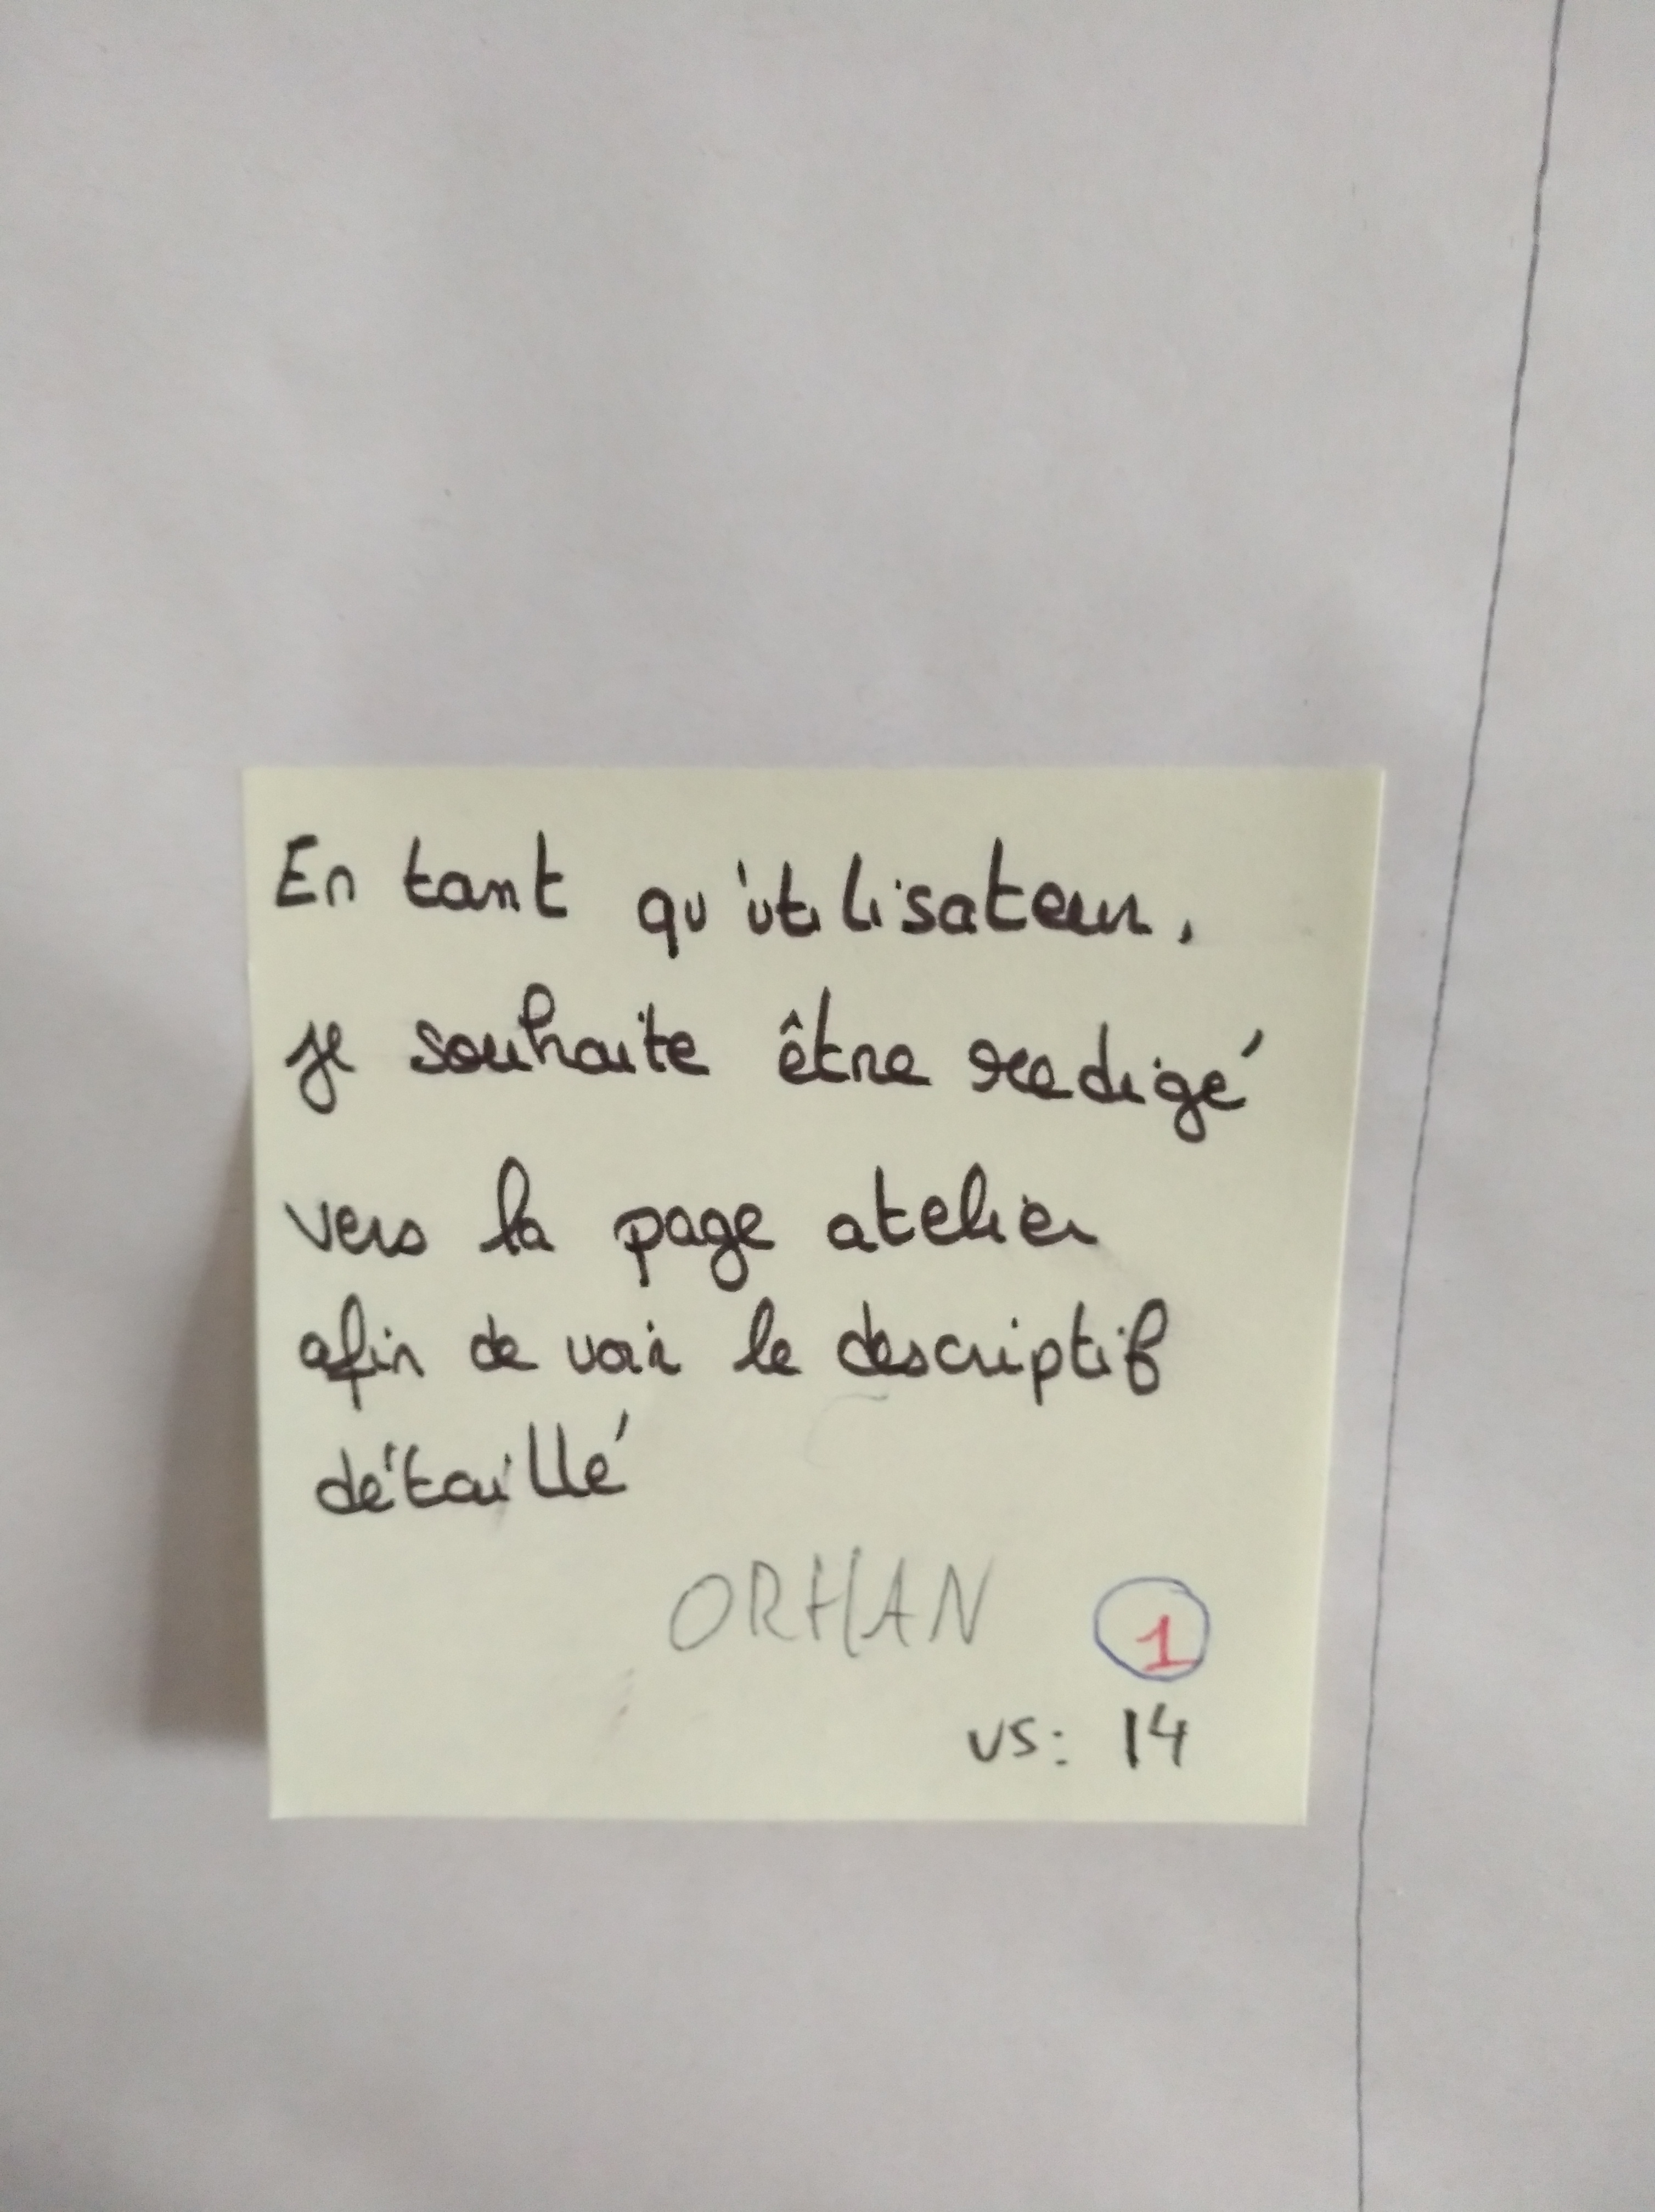 En tant qu'utilisateur,
je souhaite être redigé
vers la page atelier
afin de voir le descriptif
détaillé
ORHAN 1
US: 14